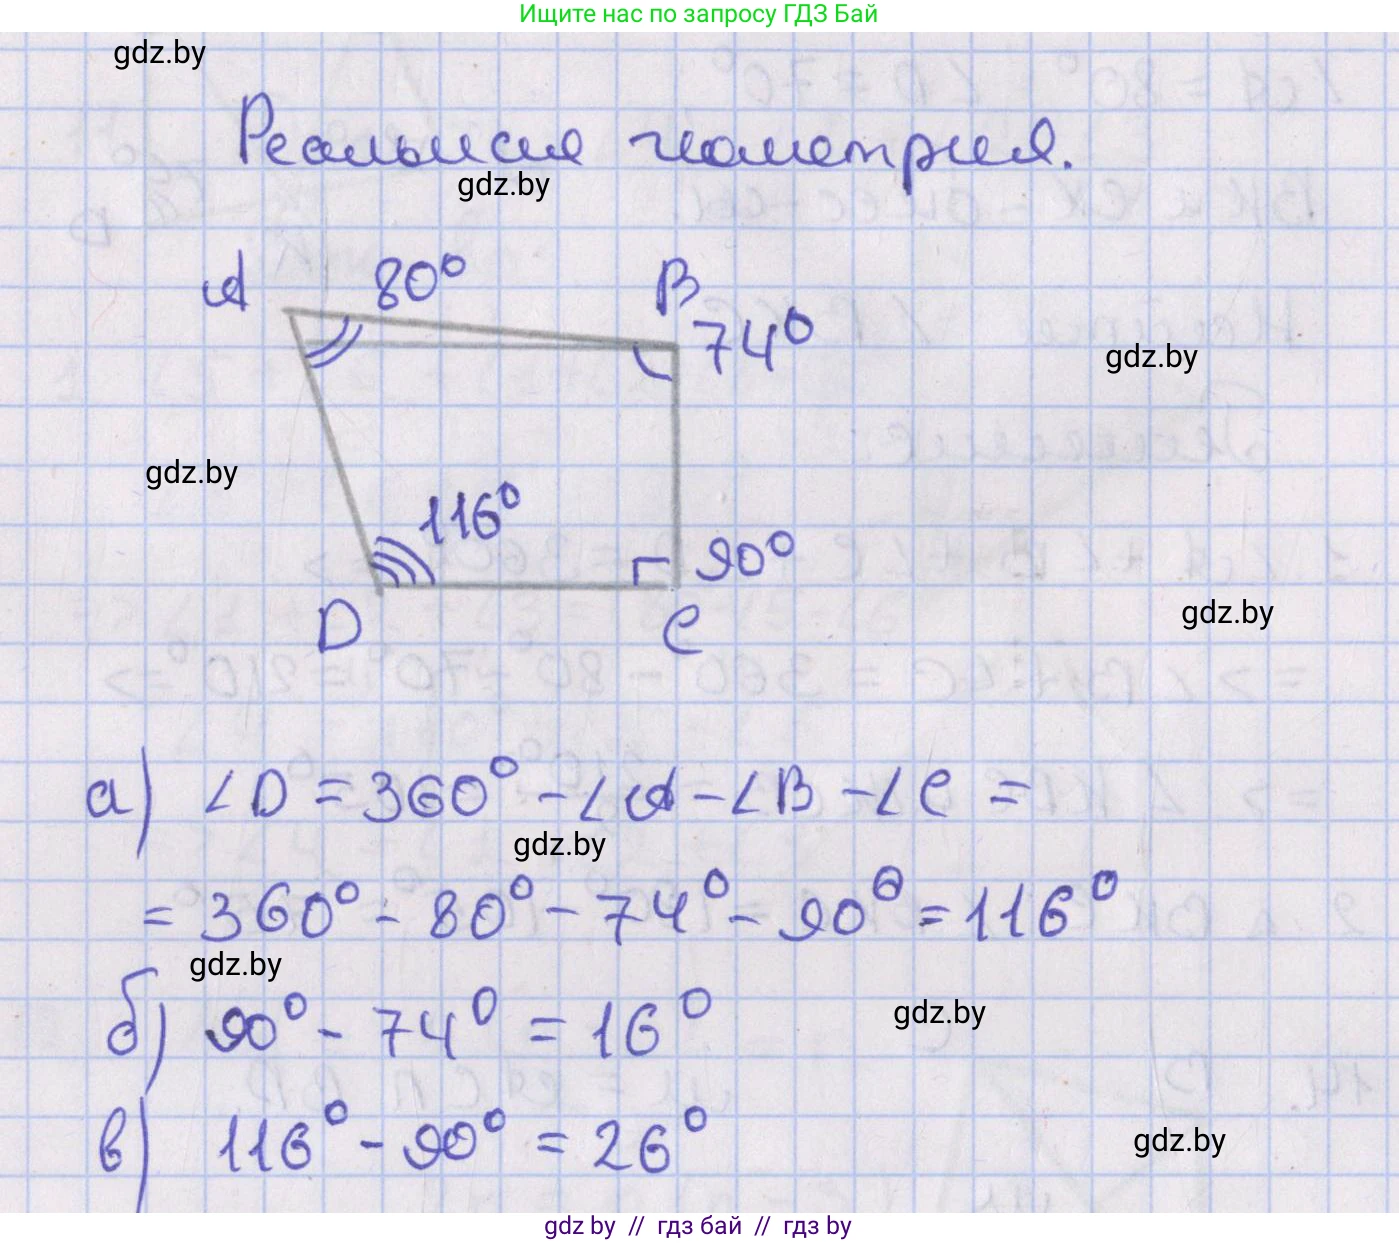 Ищите нас по запросу ГДЗ Бай
gdz.by
Реальная геометрия.
gdz.by
A 80° B
74°
gdz.by
gdz.by
116°
90°
gdz.by
D C
а) ∠D = 360° - ∠A - ∠B - ∠C =
gdz.by
= 360° - 80° - 74° - 90° = 116°
gdz.by
б) 90° - 74° = 16°
gdz.by
в) 116° - 90° = 26°
gdz.by
gdz.by // гдз бай // гдз by